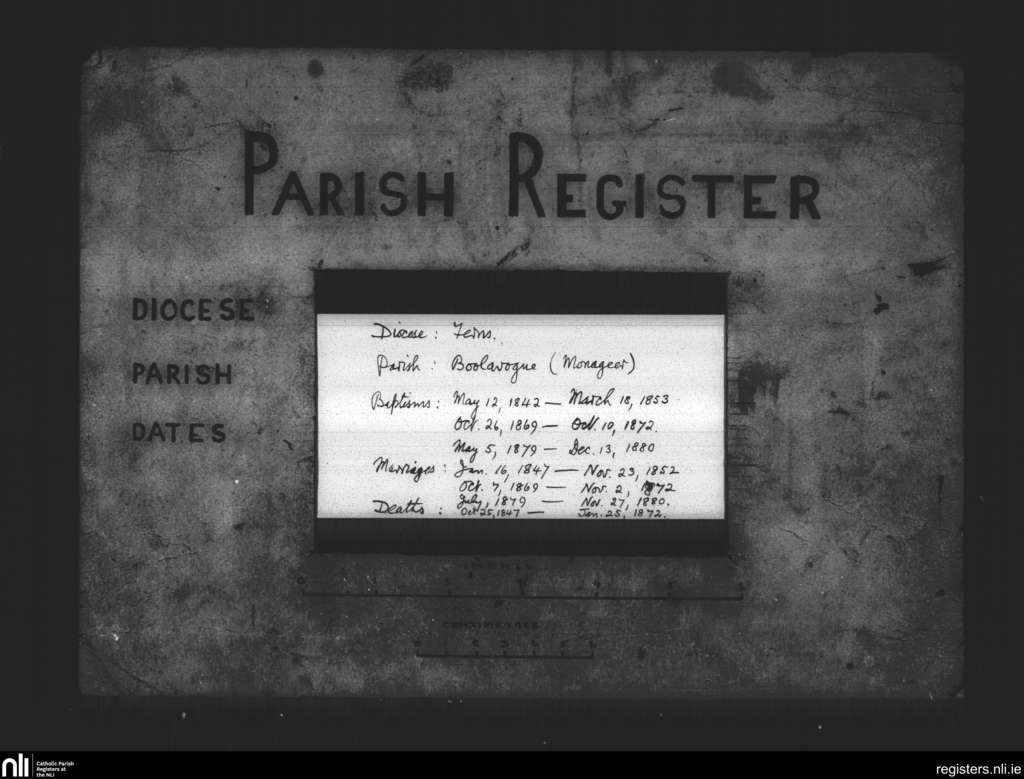 PARISH REGISTER
DIOCESE
PARISH
DATES
Diocese : Ferns.
Parish : Boolavogue (Monageer)
Baptisms : May 12, 1842 — March 18, 1853
Oct. 26, 1869 — Oct. 10, 1872.
May 5, 1879 — Dec. 13, 1880
Marriages : Jan. 16, 1847 — Nov. 23, 1852
Oct. 7, 1869 — Nov. 2, 1872
July, 1879 — Nov. 27, 1880.
Deaths : Oct 25, 1847 — Jan. 25, 1872.
INCHES
CENTIMETRES
nli
Catholic Parish
Registers at
the NLI
registers.nli.ie